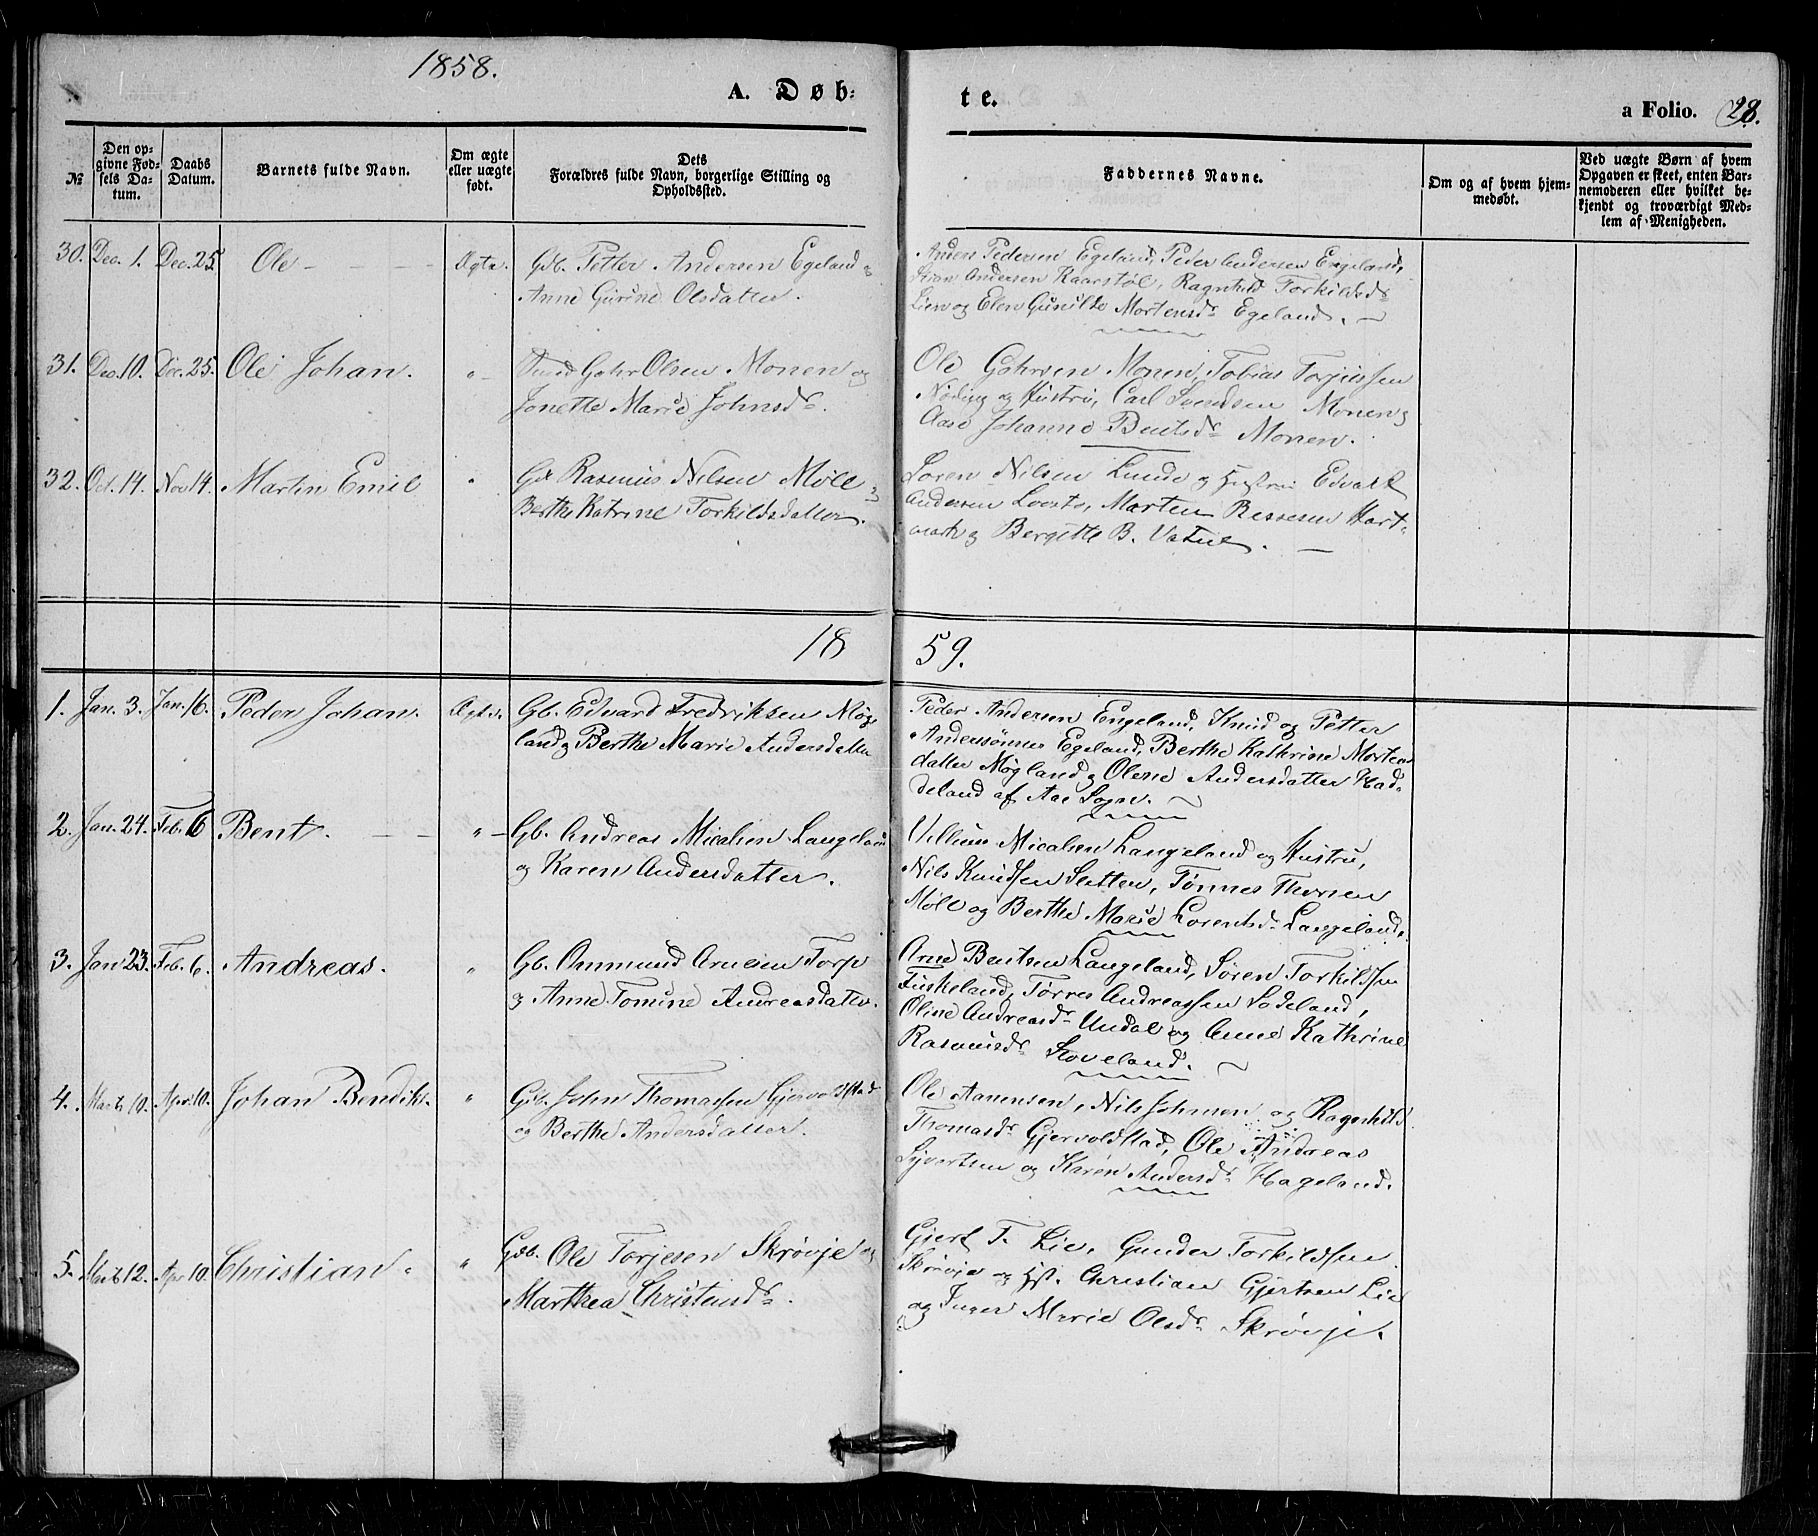 1858.
A. Døb-
te.
a Folio. 28.
№
Den op-
givne Fød-
sels Da-
tum.
Daabs
Datum.
Barnets fulde Navn.
Om ægte
eller uægte
født.
Dets
Forældres fulde Navn, borgerlige Stilling og
Opholdssted.
Faddernes Navne.
Om og af hvem hjem-
medøbt.
Ved uægte Børn af hvem
Opgaven er skeet, enten Bar-
nemoderen eller hvilket be-
kjendt og troværdigt Med-
lem af Menigheden.
30. Dec. 1. Dec. 25. Ole Ægte. Gb. Petter Andersen Egeland
Anne Gurine Olsdatter.
Anders Pedersen Egeland, Peder Andersen Engeland,
Andersen Kaarstøl, Ragnhild Torkildsdr
Lien og Elen Gunilde Mortensdr Egeland.
31. Dec. 10. Dec. 25. Ole Johan. " Olsen Monen og
Jonette Marie Johnsdr.
Ole Monen, Tobias Torjussen
Nøding og Hustru, Carl Svendsen Monen og
Aase Johanne Bentsdr Monen.
32. Oct. 14. Nov 14. Martin Emil " Rasmus Nilsen Möll og
Berthe Katrine Torkildsdatter.
Søren Nilsen Lunde og Hustru Edvart
Andersen Morten Ressesen Hart-
mark og Bergitte B. Vatne.
18 59.
1. Jan. 3. Jan. 16. Peder Johan. Ægte. Gb. Edvard Fredriksen Møg-
land og Berthe Marie Andersdatter
Peder Andersen Engeland, Knud og Petter
Anderssønner Egeland, Berthe Kathrine Mortens
datter Møgland og Olene Andersdatter Had-
deland af Aae Sogn.
2. Jan. 24. Feb. 6 Bent. " Gb. Andreas Micalsen Langeland
og Karen Andersdatter.
Villum Micalsen Langeland og Hustru,
Nils Knudssen Sletten, Tønnes Thorsen
Möll og Berthe Marie Lorentsdr Langeland.
3. Jan 23. Feb. 6. Andreas. " Gb. Ommund Arnesen Torp
og Anne Tomine Andreasdatter.
Arne Bentsen Langeland, Søren Torkildsen
Fuskeland, Tørres Andreassen Sodeland,
Oline Andreasdr Undal og Anne Kathrine
Rasmusdr Skoveland.
4. Marts 10. Apr. 10. Johan Bendiks. " Gb. John Thomassen Gjervoldstad
og Berthe Andersdatter.
Ole Aanensen, Nils Johnsen og Ragnhild
Thomasdr Gjervoldstad, Ole Andreas
Syvertsen og Karen Andersdr Hageland.
5. Marts 12. Apr 10. Christian. " Gdb. Ole Torjesen Skrøvje og
Marthea Christensdr.
Gjert T. Lie, Gunder Torkildsen
Skrøvje og Hst. Christian Gjertsen Lie
og Inger Marie Olsdr Skrøvje.